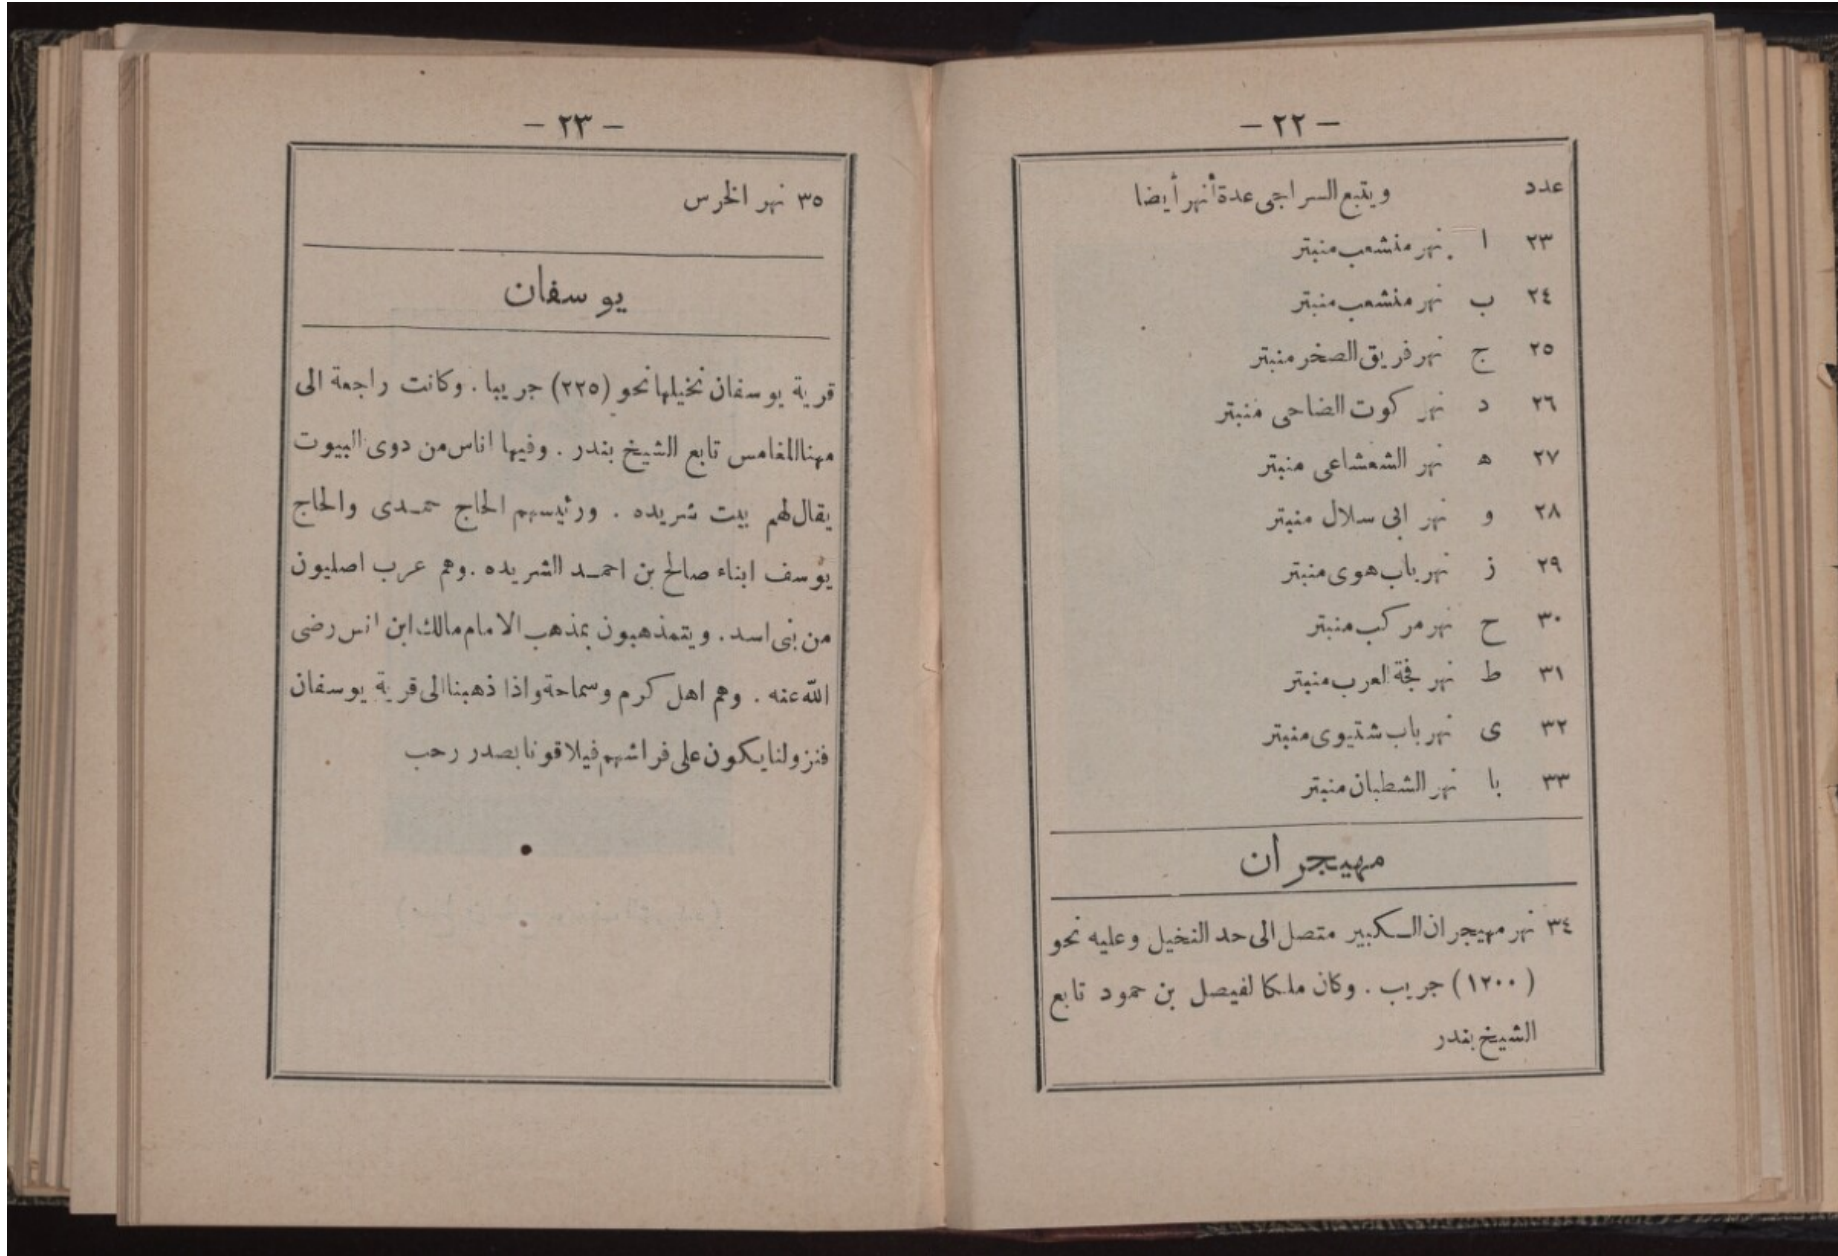 — ٢٢ —
عدد ويتبع السراجى عدة أنهر أيضا
٢٣ ا نهر منشعب منبتر
٢٤ ب نهر منشعب منبتر
٢٥ ج نهر فريق الصخر منبتر
٢٦ د نهر كوت الضاحى منبتر
٢٧ ه نهر الشعشاعى منبتر
٢٨ و نهر ابى سلال منبتر
٢٩ ز نهر باب هوى منبتر
٣٠ ح نهر مركب منبتر
٣١ ط نهر فجة العرب منبتر
٣٢ ى نهر باب شتيوى منبتر
٣٣ با نهر الشطبان منبتر
مهيجران
٣٤ نهر مهيجران الكبير متصل الى حد النخيل وعليه نحو
( ١٢٠٠ ) جريب . وكان ملكا لفيصل بن حمود تابع
الشيخ بندر
— ٢٣ —
٣٥ نهر الخرس
يوسفان
قرية يوسفان نخيلها نحو (٢٢٥) جريبا . وكانت راجعة الى
مهنا المغامس تابع الشيخ بندر . وفيها اناس من دوى البيوت
يقال لهم بيت شريده . ورئيسهم الحاج حمدى والحاج
يوسف ابناء صالح بن احمد الشريده . وهم عرب اصليون
من بنى اسد . ويتمذهبون بمذهب الامام مالك ابن انس رضى
الله عنه . وهم اهل كرم وسماحة واذا ذهبنا الى قرية يوسفان
فنزولنا يكون على فراشهم فيلاقونا بصدر رحب